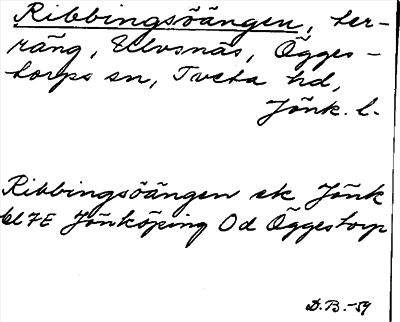 Ribbingsöängen, ter-
räng, Ulvsnäs, Ögges-
torps sn, Tveta hd,
Jönk. l.
Ribbingsöängen ek Jönk
bl 7E Jönköping Od Öggestorp
D.B.-59